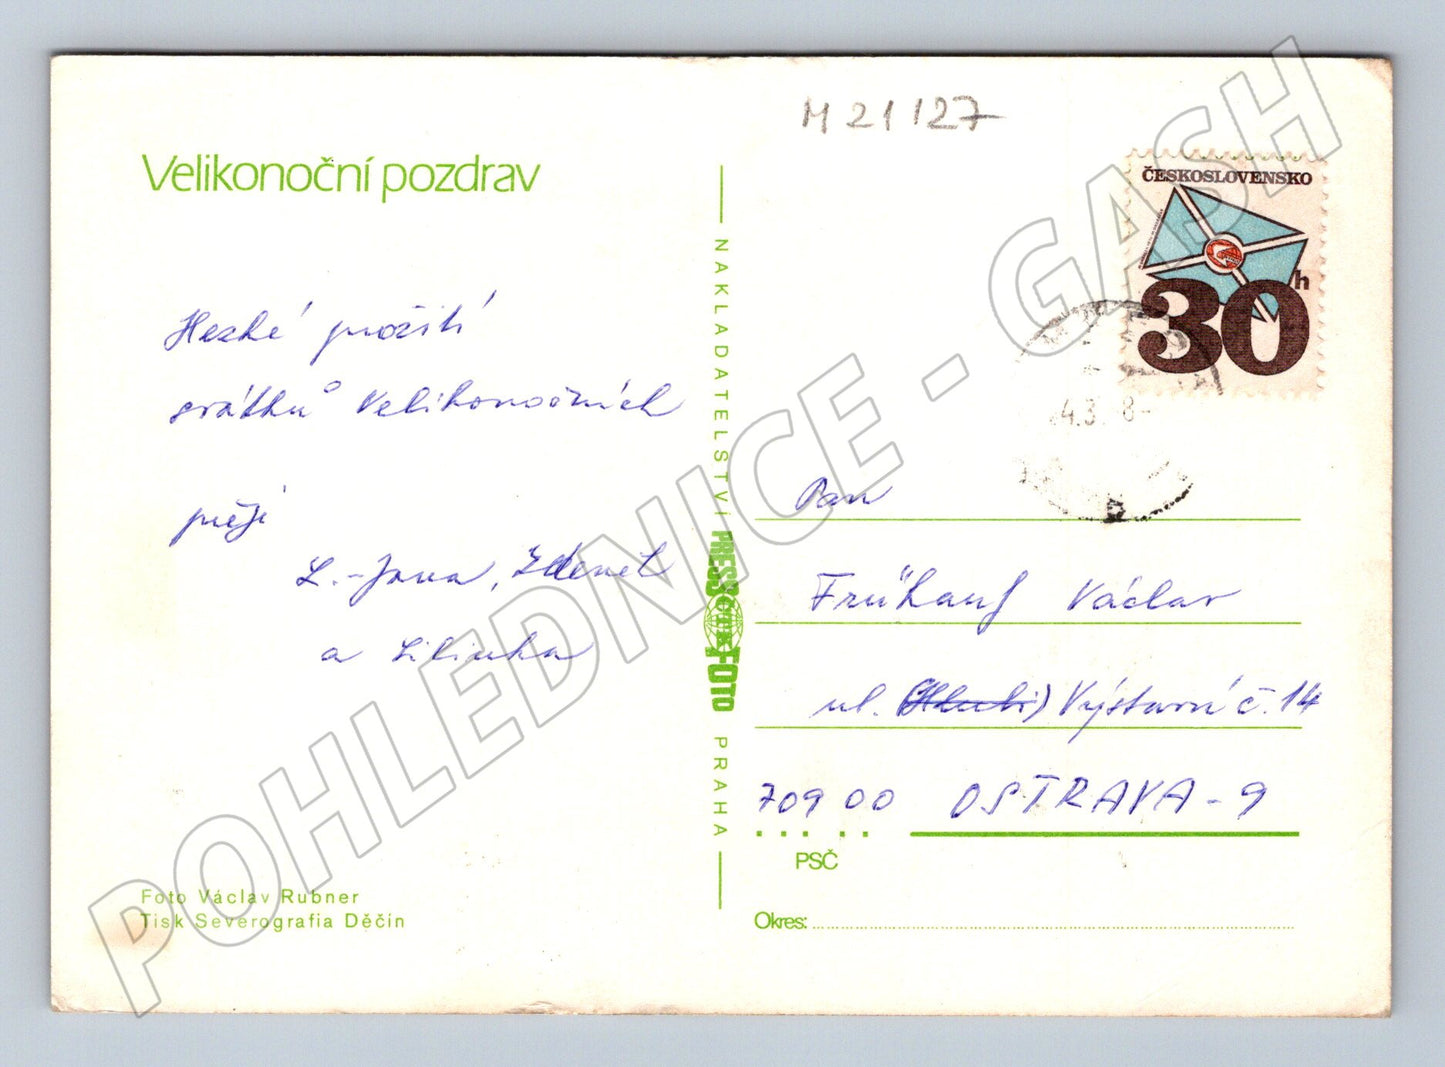 M 21 127
Velikonoční pozdrav
Hezké prožití
svátků Velikonočních
přejí
L.-Jana, Zdeněk
a Lilinka
Foto Václav Rubner
Tisk Severografia Děčín
NAKLADATELSTVÍ PRESSFOTO PRAHA
ČTK
ČESKOSLOVENSKO
30h
4.3 8
Pan
Frühauf Václav
ul. Výstavní č. 14
709 00 OSTRAVA-9
PSČ
Okres:
POHLEDNICE - GASH